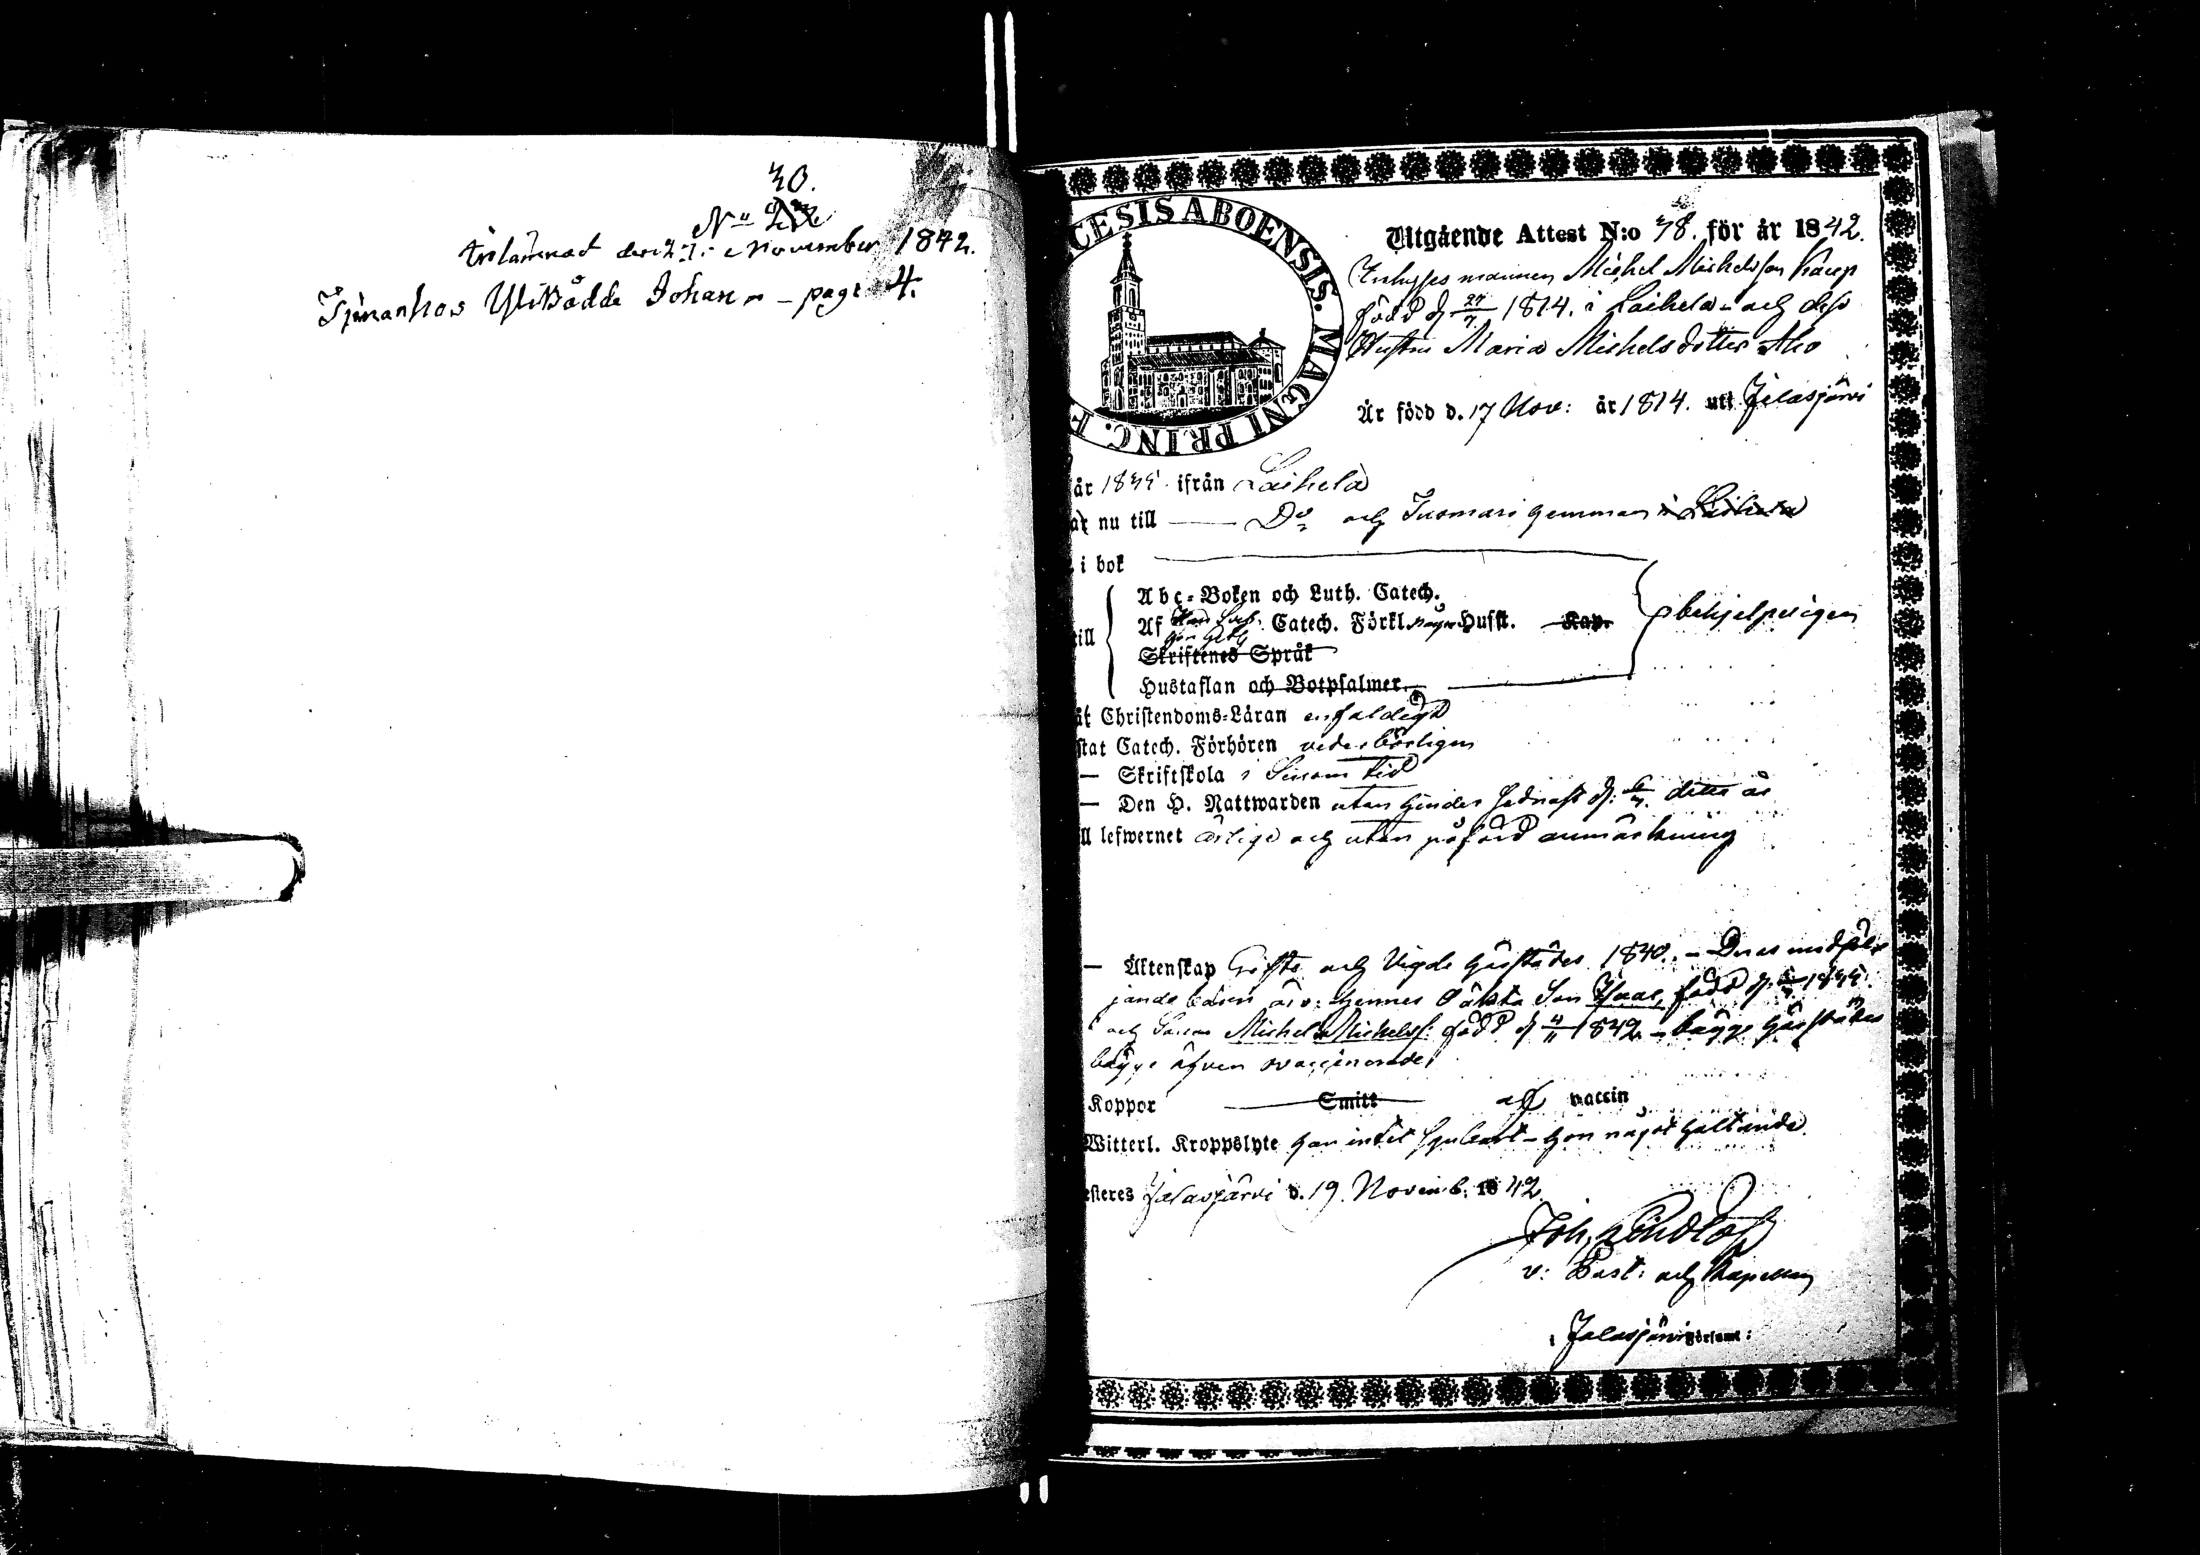 30.
N:o
inlämnad den 27: November 1842.
Tjenar hos Johan - page 4.
CESIS ABOENSIS. MAGNI PRINC. F
Utgående Attest N:o 38. för år 1842.
Inhyses mannen Michel Michelsson Kaup
född d 27/7 1814. i Laihela - och dess
Hustru Maria Michelsdotter Aho
Är född d. 17 Nov: år 1814. uti Jalasjärvi
år ifrån Laihela
ar nu till — Do och
i bok
Abc-Boken och Luth. Catech.
Af Catech. Förkl. någre Hufst. Kap.
till
behjelpeligen
Skriftenes Språk
Hustaflan och Botpsalmer.
åt Christendoms-Läran enfaldigt
stat Catech. Förhören vederbörligen
— Skriftskola i sinom tid
— Den H. Nattwarden utan hinder sednast d: detta år
ll lefwernet ärliga och utan påförd anmärkning
— Äktenskap Gifte och Vigde härstädes 1840. - Deras medföl-
jande barn äro: hennes oäkta Son Isaac, född d
och Sonen Michel Michelss: född d 4/11 1842 - bägge härstädes
bägge äfven vaccinerade
Koppor Smitt af vaccin
Witterl. Kroppslyte han intet - hon något haltande.
esteres Jalasjärvi d. 19. Novemb: 1842
Joh.
v: Past: och Kapellan
i Jalasjärvi Församl: